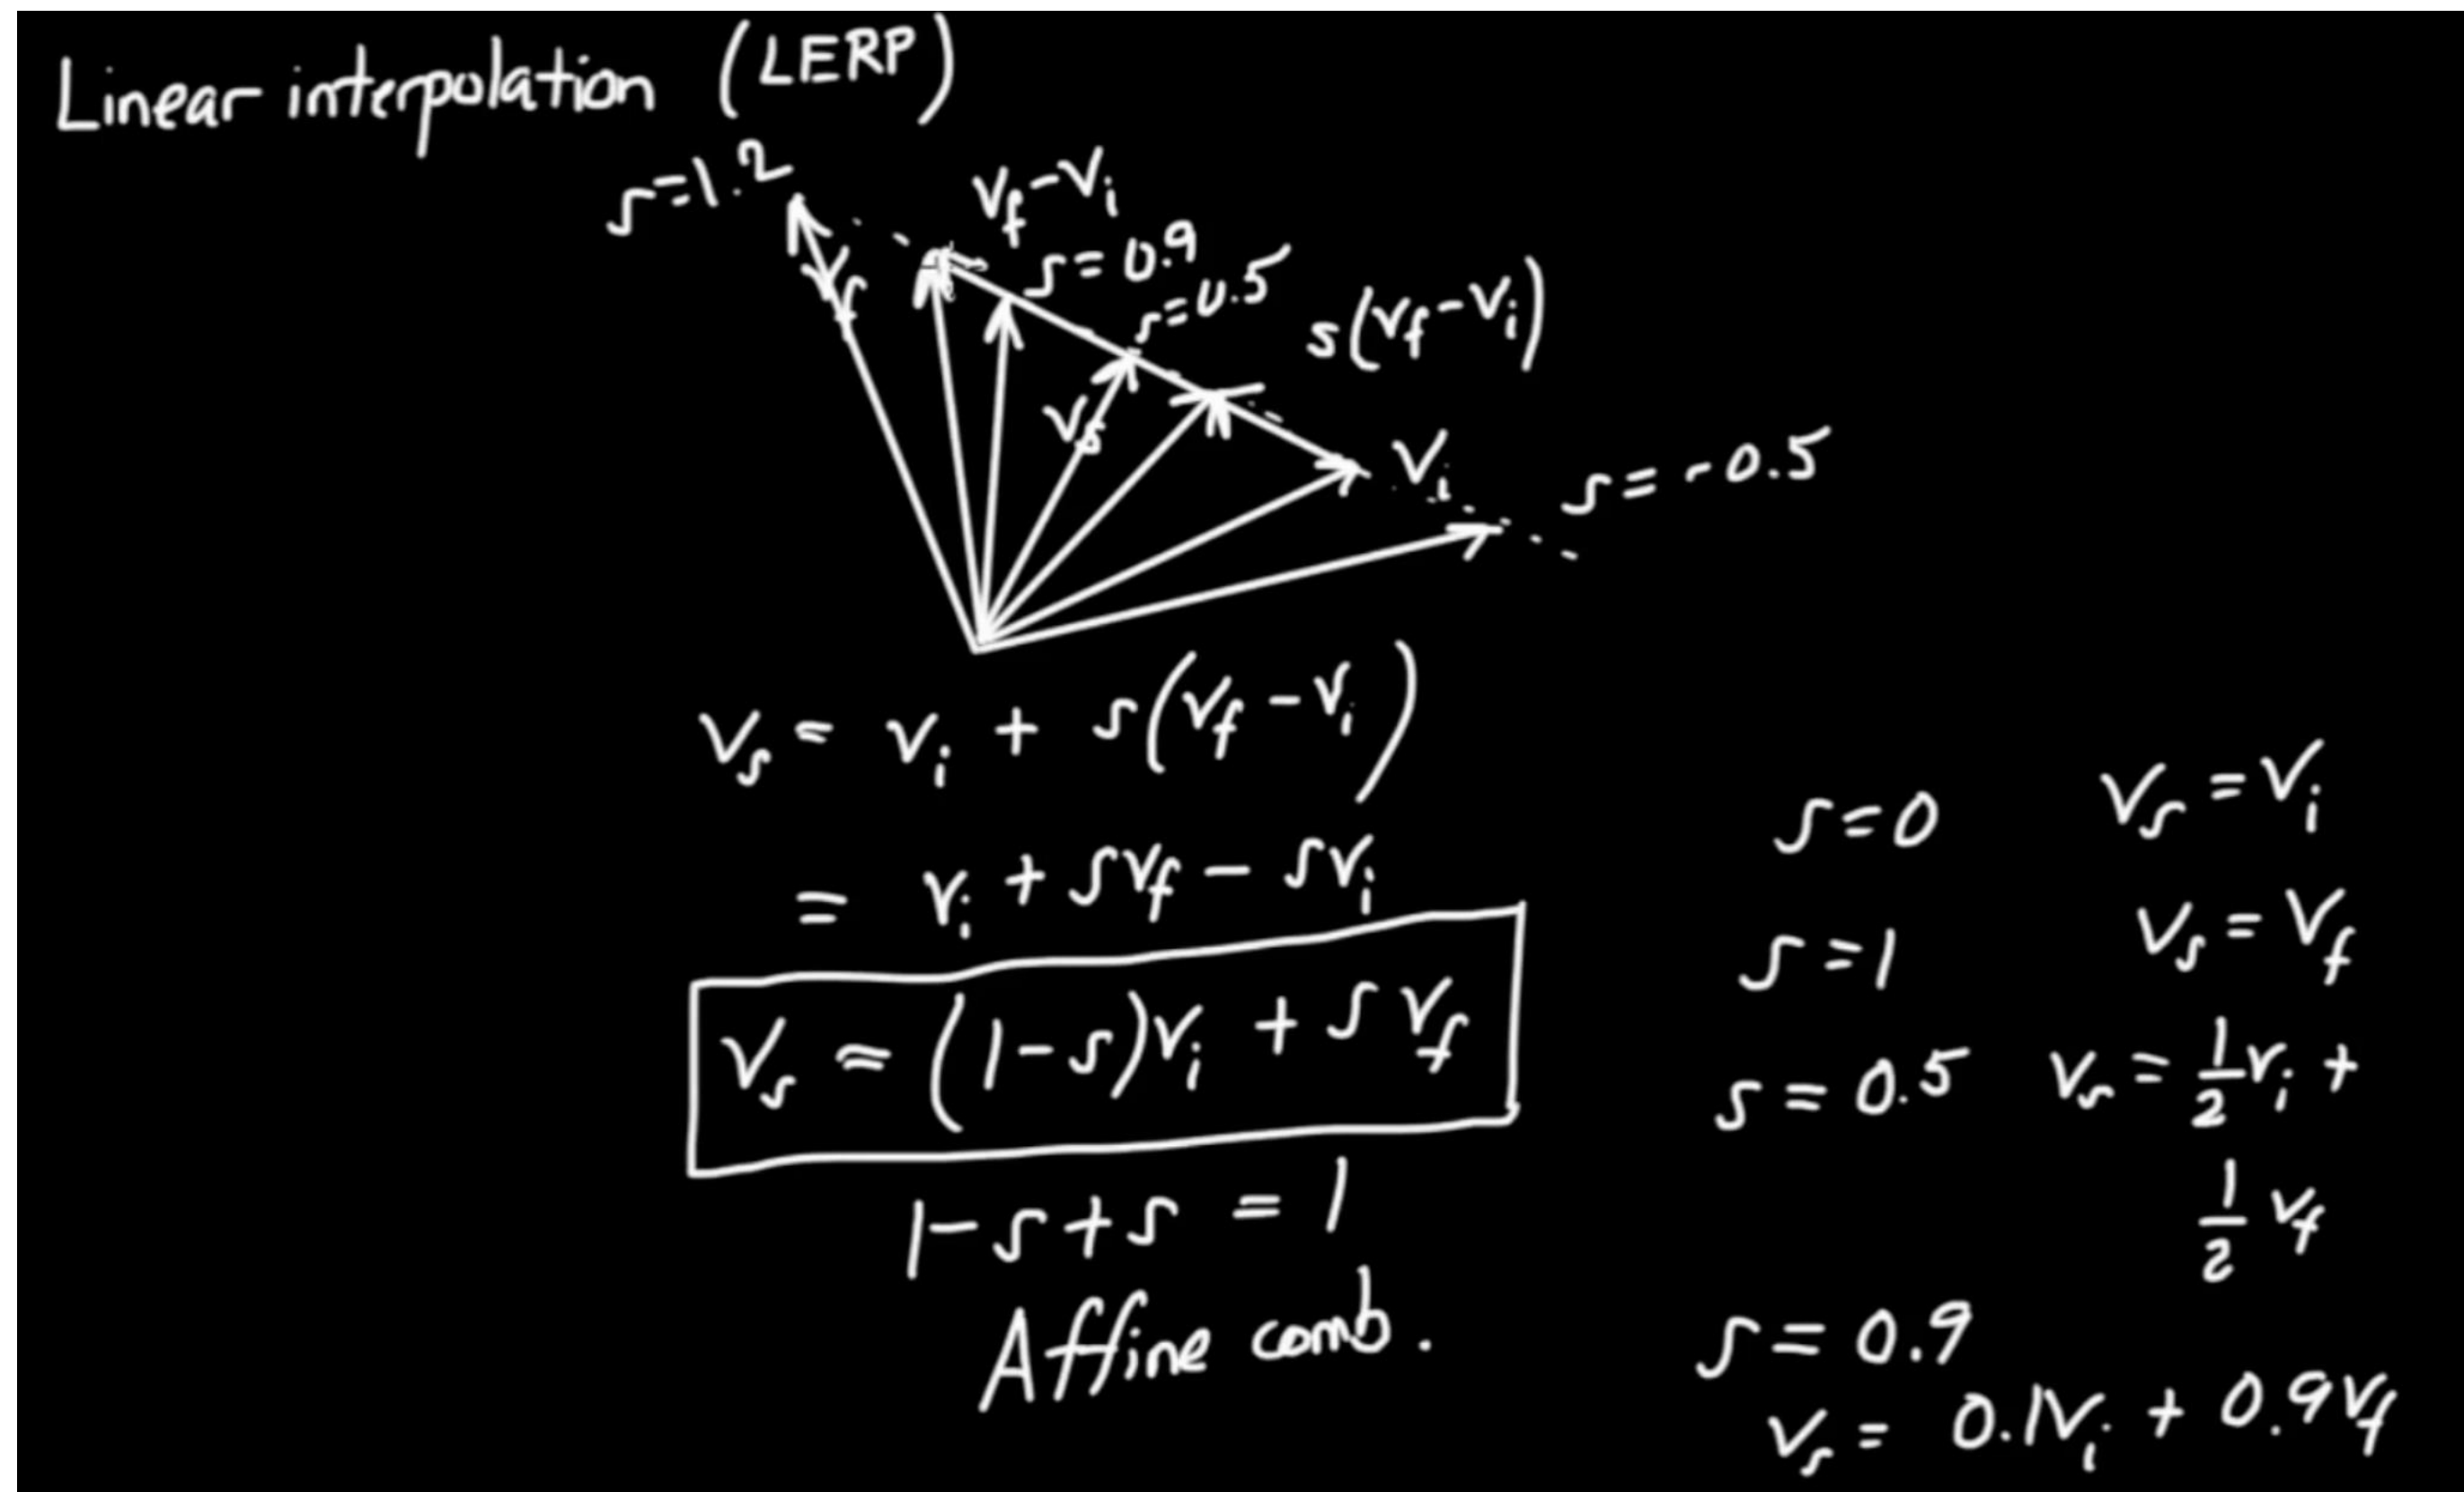 Linear interpolation (LERP)
s=1.2
v_f-v_i
s=0.9
s=0.5
s(v_f-v_i)
v_f
v_s
v_i
s=-0.5
v_s = v_i + s(v_f - v_i)
= v_i + sv_f - sv_i
v_s = (1-s)v_i + sv_f
1-s+s = 1
Affine comb.
s=0 v_s=v_i
s=1 v_s=v_f
s=0.5 v_s = 1/2 v_i +
1/2 v_f
s=0.9
v_s = 0.1v_i + 0.9v_f